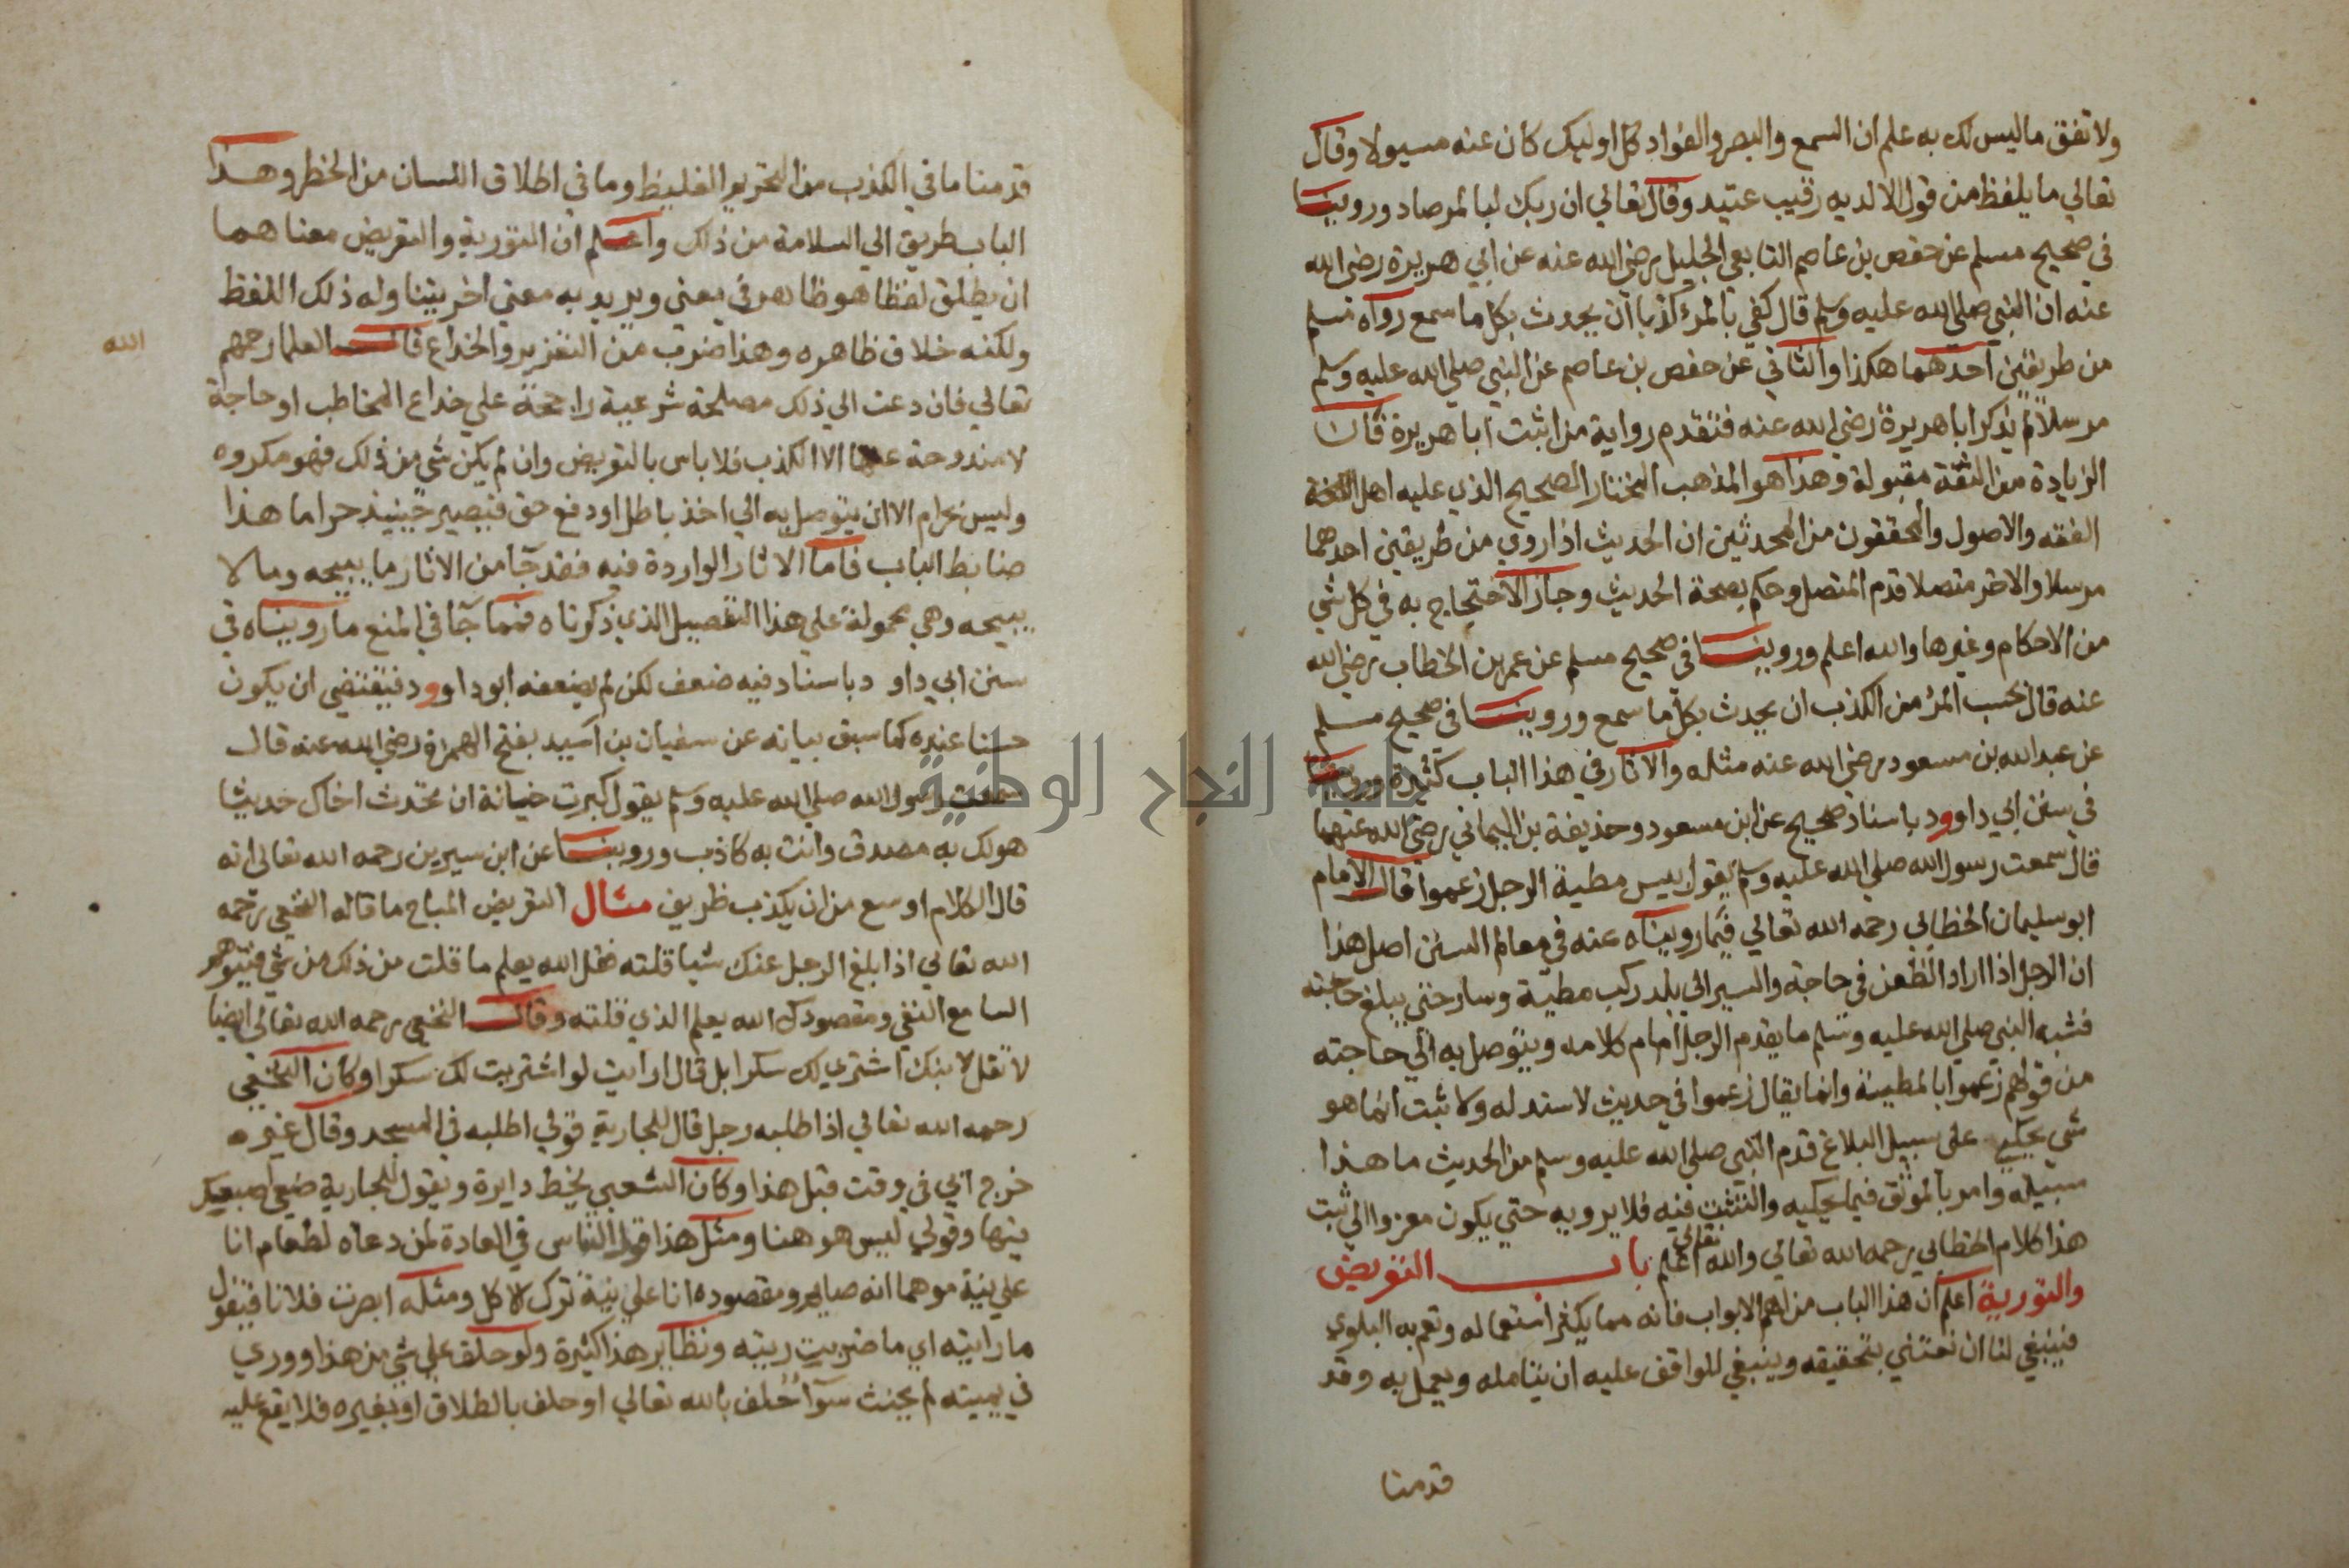 ولا تقف ما ليس لك به علم ان السمع والبصر والفواد كل اوليك كان عنه مسيولا وقال
تعالي ما يلفظ من قول الا لديه رقيب عتيد وقال تعالي ان ربك لبالمرصاد وروينا
في صحيح مسلم عن حفص بن عاصم التابعي الجليل رضي الله عنه عن ابي هريرة رضي الله
عنه ان النبي صلي الله عليه وسلم قال كفي بالمرء كذبا ان يحدث بكل ما سمع رواه مسلم
من طريقين احدهما هكذا والثاني عن حفص بن عاصم عن النبي صلي الله عليه وسلم
مرسلا لم يذكر ابا هريرة رضي الله عنه فتقدم رواية من اثبت ابا هريرة فان
الزيادة من الثقة مقبولة وهذا هو المذهب المختار الصحيح الذي عليه اهل
الفقه والاصول والمحققون من المحدثين ان الحديث اذا روي من طريقين احدهما
مرسلا والاخر متصلا قدم المتصل وحكم بصحة الحديث وجاز الاحتجاج به في كل شي
من الاحكام وغيرها والله اعلم وروينا في صحيح مسلم عن عمر بن الخطاب رضي الله
عنه قال بحسب المرء من الكذب ان يحدث بكل ما سمع وروينا في صحيح مسلم
عن عبد الله بن مسعود رضي الله عنه مثله والاثار في هذا الباب كثيرة وروينا
في سنن ابي داوود باسناد صحيح عن ابن مسعود وحذيفة بن اليماني رضي الله عنهما
قال سمعت رسول الله صلي الله عليه وسلم يقول بيس مطية الرجل زعموا قال الامام
ابو سليمان الخطابي رحمه الله تعالي فيما رويناه عنه في معالم السنن اصل هذا
ان الرجل اذا اراد الظعن في حاجة والسير الي بلد ركب مطية وسار حتي يبلغ حاجته
فشبه النبي صلي الله عليه وسلم ما يقدم الرجل امام كلامه ويتوصل به الي حاجته
من قولهم زعموا بالمطية وانما يقال زعموا في حديث لا سند له ولا ثبت انما هو
شي يحكي علي سبيل البلاغ فذم النبي صلي الله عليه وسلم من الحديث ما هذا
سبيله وامر بالتوثق فيما يحكيه والتثبت فيه فلا يرويه حتي يكون معزوا الي ثبت
هذا كلام الخطابي رحمه الله تعالي والله تعالي اعلم باب التعريض
والتورية اعلم ان هذا الباب من اهم الابواب فانه مما يكثر استعماله وتعم به البلوي
فينبغي لنا ان نعتني بتحقيقه وينبغي للواقف عليه ان يتامله ويعمل به وقد
قدمنا
قدمنا ما في الكذب من التحريم الغليظ وما في اطلاق اللسان من الخطر وهذا
الباب طريق الي السلامة من ذلك واعلم ان التورية والتعريض معناهما
ان يطلق لفظا هو ظاهر في معني ويريد به معني اخر يتناوله ذلك اللفظ
ولكنه خلاف ظاهره وهذا ضرب من التغرير والخداع قال العلما رحمهم
الله
تعالي فان دعت الي ذلك مصلحة شرعية راجحة علي خداع المخاطب او حاجة
لا مندوحة عنها الا الكذب فلا باس بالتعريض وان لم يكن شي من ذلك فهو مكروه
وليس بحرام الا ان يتوصل به الي اخذ باطل او دفع حق فيصير حينيذ حراما هذا
ضابط الباب فاما الاثار الواردة فيه فقد جا من الاثار ما يبيحه وما لا
يبيحه وهي محمولة علي هذا التفصيل الذي ذكرناه فمما جا في المنع ما رويناه في
سنن ابي داود باسناد فيه ضعف لكن لم يضعفه ابو داوود فيقتضي ان يكون
حسنا عنده كما سبق بيانه عن سفيان بن اسيد بفتح الهمزة رضي الله عنه قال
سمعت رسول الله صلي الله عليه وسلم يقول كبرت خيانة ان تحدث اخاك حديثا
هو لك به مصدق وانت به كاذب وروينا عن ابن سيرين رحمه الله تعالي انه
قال الكلام اوسع من ان يكذب ظريف مثال التعريض المباح ما قاله النخعي رحمه
الله تعالي اذا بلغ الرجل عنك شيا قلته فقل الله يعلم ما قلت من ذلك من شي فيتوهم
السامع النفي ومقصودك الله يعلم الذي قلته وقال النخعي رحمه الله تعالي ايضا
لا تقل لابنك اشتري لك سكرا بل قال ارايت لو اشتريت لك سكرا وكان النخعي
رحمه الله تعالي اذا طلبه رجل قال للجارية قولي اطلبه في المسجد وقال غيره
خرج ابي في وقت قبل هذا وكان الشعبي يخط دايرة ويقول للجارية ضعي اصبعك
فيها وقولي ليس هو هنا ومثل هذا قول الناس في العادة لمن دعاه لطعام انا
علي نية موهما انه صايم ومقصوده انا علي نية ترك الاكل ومثله ابصرت فلانا فيقول
ما رايته اي ما ضربت ريته ونظاير هذا كثيرة ولو حلف علي شي من هذا ووري
في يمينه لم يحنث سوآ حلف بالله تعالي او حلف بالطلاق او بغيره فلا يقع عليه
جامعة النجاح الوطنية